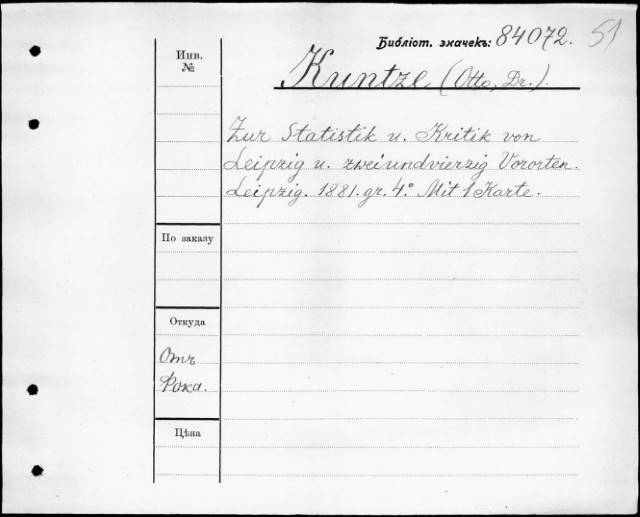 Библіот. значекъ: 84072. 51
Инв.
№
Kuntze (Otto, Dr.).
Zur Statistik u. Kritik von
Leipzig u. zweiundvierzig Vororten.
Leipzig. 1881. gr. 4.° Mit 1 Karte.
По заказу
Откуда
Отъ
Фока.
Цѣна